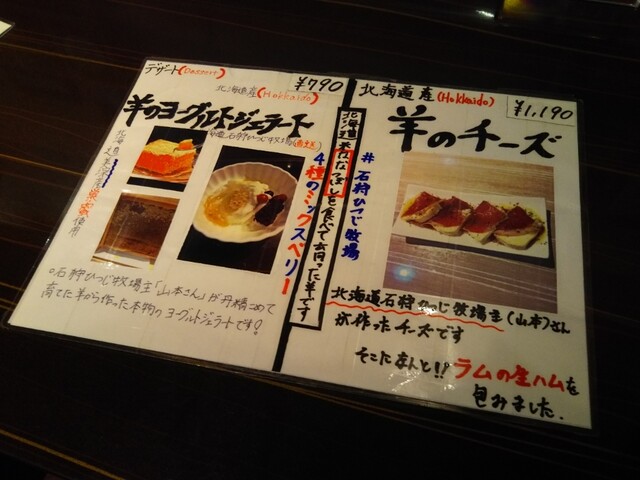 デザート(Dessert)
¥790
北海道産(Hokkaido)
羊のヨーグルトジェラート
石狩ひつじ牧場
4種のミックスベリー
北海道
使用
○石狩ひつじ牧場主「山本さん」が丹精こめて
育てた羊から作った本物のヨーグルトジェラートです!
北海道米ななつぼしを食べて育った羊です
北海道産(Hokkaido)
¥1,190
羊のチーズ
#石狩ひつじ牧場
北海道石狩ひつじ牧場主(山本)さん
が作ったチーズです
そこになんと!!ラムの生ハムを
包みました.